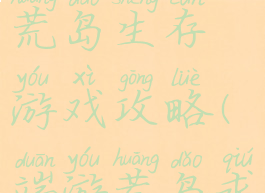 huāng dǎo shēng cún
荒岛生存
yóu xì gōng lüè
游戏攻略(
duān yóu huāng dǎo qiú
端游荒岛求